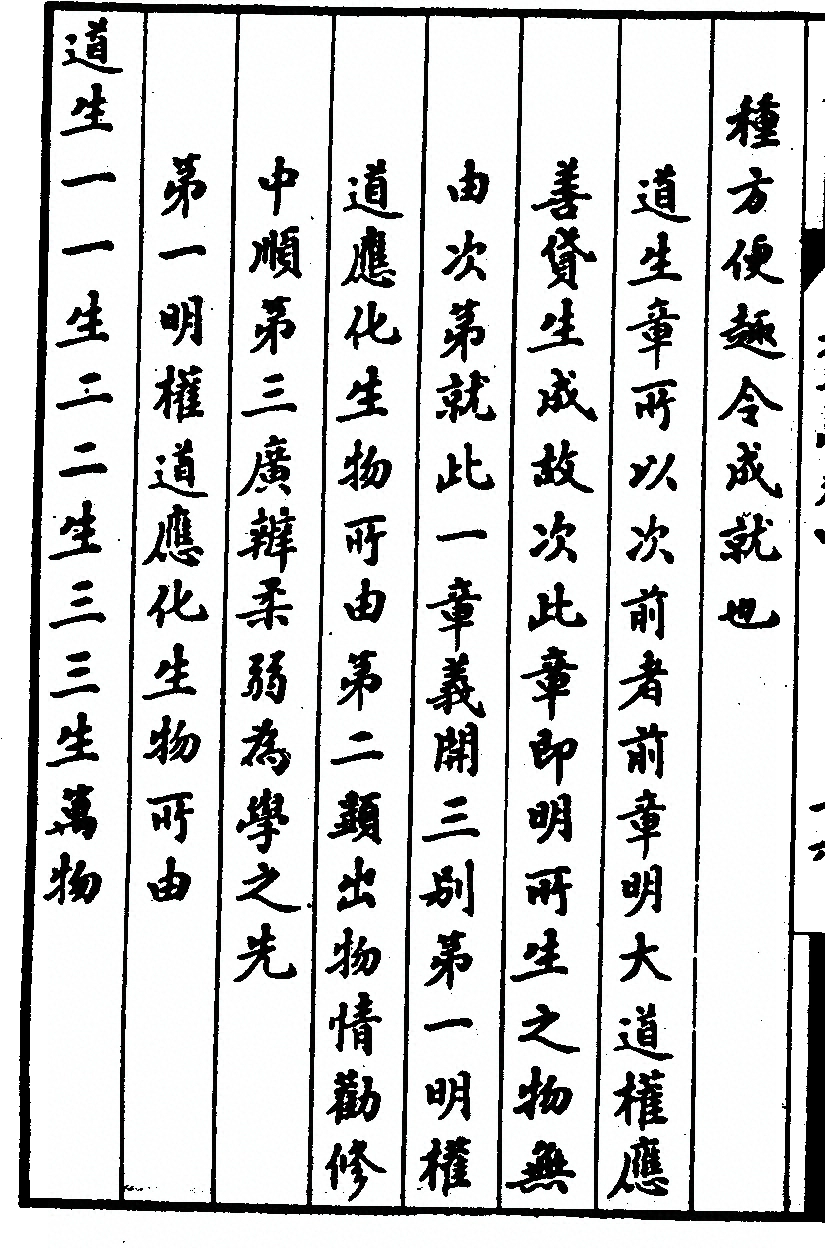 種方便趣令成就也
道生章所以次前者前章明大道權應
善貸生成故次此章即明所生之物無
由次第就此一章義開三別第一明權
道應化生物所由第二顯出物情勸修
中順第三廣辯柔弱為學之先
第一明權道應化生物所由
道生一一生二二生三三生萬物